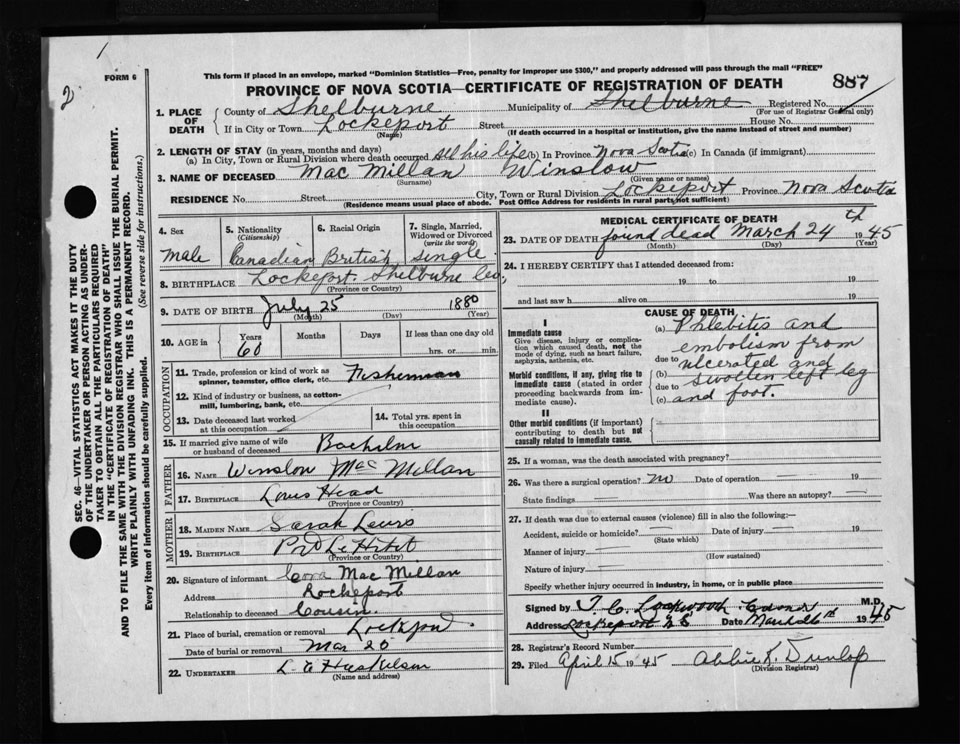 1
2
FORM 6
This form if placed in an envelope, marked "Dominion Statistics—Free, penalty for improper use $300," and properly addressed will pass through the mail "FREE"
PROVINCE OF NOVA SCOTIA—CERTIFICATE OF REGISTRATION OF DEATH
887
SEC. 46—VITAL STATISTICS ACT MAKES IT THE DUTY
OF THE UNDERTAKER OR PERSON ACTING AS UNDER-
TAKER TO OBTAIN ALL THE PARTICULARS REQUIRED
IN THE "CERTIFICATE OF REGISTRATION OF DEATH"
AND TO FILE THE SAME WITH THE DIVISION REGISTRAR WHO SHALL ISSUE THE BURIAL PERMIT.
WRITE PLAINLY WITH UNFADING INK. THIS IS A PERMANENT RECORD.
Every item of information should be carefully supplied. (See reverse side for instructions.)
1. PLACE OF DEATH County of Shelburne Municipality of Shelburne Registered No.
(For use of Registrar General only)
If in City or Town Lockeport Street House No.
(Name) (If death occurred in a hospital or institution, give the name instead of street and number)
2. LENGTH OF STAY (in years, months and days)
(a) In City, Town or Rural Division where death occurred all his life (b) In Province Nova Scotia (c) In Canada (if immigrant)
3. NAME OF DECEASED Mac Millan Winslow
(Surname) (Given name or names)
RESIDENCE No. Street City, Town or Rural Division Lockeport Province Nova Scotia
(Residence means usual place of abode. Post Office Address for residents in rural parts not sufficient)
4. Sex 5. Nationality (Citizenship) 6. Racial Origin 7. Single, Married, Widowed or Divorced (write the word)
Male Canadian British single
8. BIRTHPLACE Lockeport Shelburne Co.
(Province or Country)
9. DATE OF BIRTH July 25 1880
(Month) (Day) (Year)
10. AGE in Years Months Days If less than one day old
60 hrs. or min.
OCCUPATION
11. Trade, profession or kind of work as spinner, teamster, office clerk, etc. Fisherman
12. Kind of industry or business, as cotton-mill, lumbering, bank, etc.
13. Date deceased last worked at this occupation 14. Total yrs. spent in this occupation
15. If married give name of wife or husband of deceased Bachelor
FATHER
16. NAME Winslow MacMillan
17. BIRTHPLACE Louis Head
(Province or Country)
MOTHER
18. MAIDEN NAME Sarah Lewis
19. BIRTHPLACE
(Province or Country)
20. Signature of informant Cora Mac Millan
Address Lockeport
Relationship to deceased Cousin.
21. Place of burial, cremation or removal Lockeport
Date of burial or removal Mar 26
22. UNDERTAKER
(Name and address)
MEDICAL CERTIFICATE OF DEATH
23. DATE OF DEATH found dead March 24th 1945
(Month) (Day) (Year)
24. I HEREBY CERTIFY that I attended deceased from:
19 to 19
and last saw h alive on 19
CAUSE OF DEATH
I
Immediate cause
Give disease, injury or complication which caused death, not the mode of dying, such as heart failure, asphyxia, asthenia, etc.
Morbid conditions, if any, giving rise to immediate cause (stated in order proceeding backwards from immediate cause).
II
Other morbid conditions (if important) contributing to death but not causally related to immediate cause.
(a) Phlebitis and
embolism from
due to ulcerated and
(b) swollen left leg
due to
(c) and foot.
25. If a woman, was the death associated with pregnancy?
26. Was there a surgical operation? no Date of operation 19
State findings Was there an autopsy?
27. If death was due to external causes (violence) fill in also the following:—
Accident, suicide or homicide? Date of injury 19
(State which)
Manner of injury
(How sustained)
Nature of injury
Specify whether injury occurred in industry, in home, or in public place
Signed by T. C. Lockwood Coroner M.D.
Address Lockeport N S Date March 26th 1945
28. Registrar's Record Number
29. Filed April 15 1945 Abbie K. Dunlop
(Division Registrar)